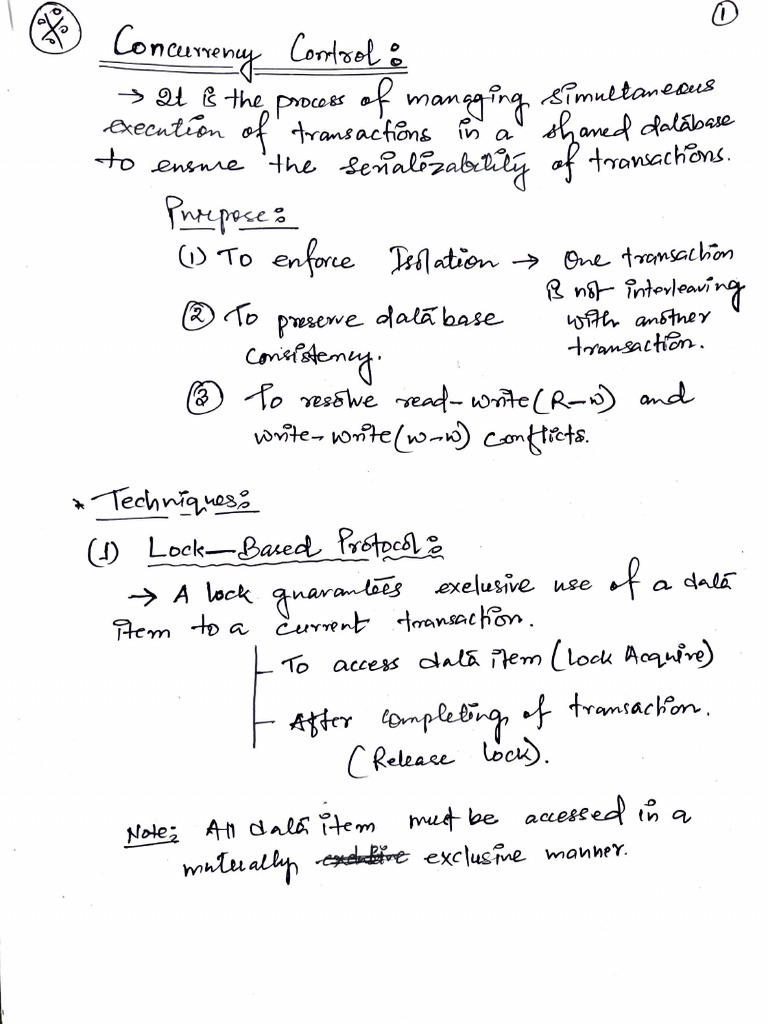 ①
Concurrency Control:
→ It is the process of managing simultaneous
execution of transactions in a shared database
to ensure the serializability of transactions.
Purpose:
(1) To enforce Isolation → One transaction
is not interleaving
② To preserve database with another
consistency. transaction.
③ To resolve read-write (R-W) and
write-write (W-W) conflicts.
* Techniques:
(1) Lock-Based Protocol:
→ A lock guarantees exclusive use of a data
item to a current transaction.
To access data item (Lock Acquire)
After completing of transaction.
(Release lock).
Note: All data item must be accessed in a
mutually exclusive manner.